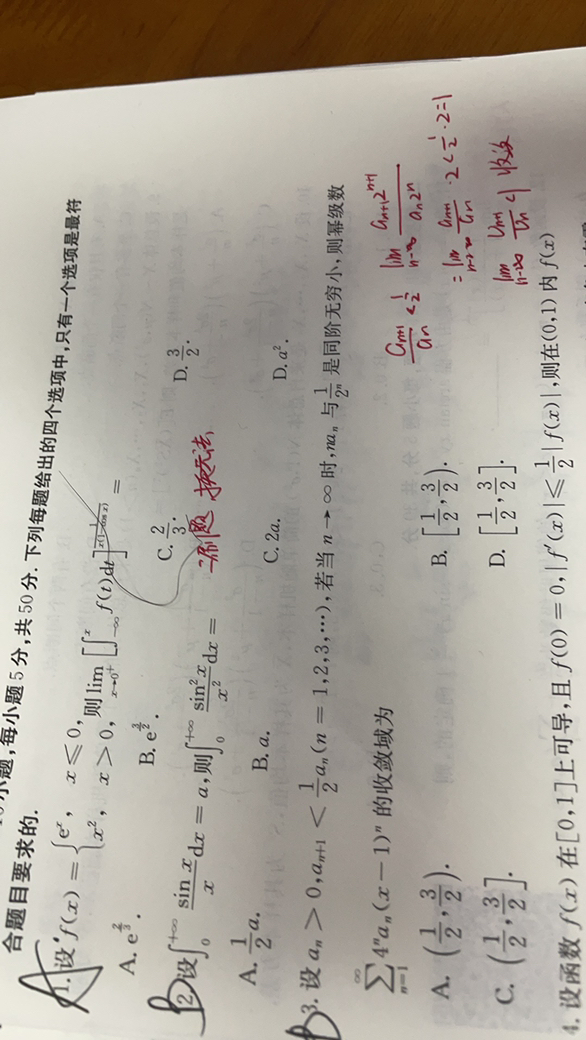 小题,每小题5分,共50分.下列每题给出的四个选项中,只有一个选项是最符
合题目要求的.
A
1.设 f(x) = { e^x, x ⩽ 0, x^2, x > 0, 则 lim_{x→0^+} [∫_{-∞}^{x} f(t)dt]^{\frac{1}{x(1-\cos x)}} =
A. e^{\frac{2}{3}}. B. e^{\frac{3}{2}}. C. \frac{2}{3}. D. \frac{3}{2}.
二刷题 换元法
B
2.设∫_0^{+∞} \frac{\sin x}{x} dx = a,则∫_0^{+∞} \frac{\sin^2 x}{x^2} dx =
A. \frac{1}{2}a. B. a. C. 2a. D. a^2.
B
3.设 a_n > 0, a_{n+1} < \frac{1}{2}a_n (n = 1,2,3,⋯),若当 n → ∞ 时, na_n 与 \frac{1}{2^n} 是同阶无穷小,则幂级数
\sum_{n=1}^{∞} 4^n a_n (x-1)^n 的收敛域为
\frac{a_{n+1}}{a_n} < \frac{1}{2} \lim_{n→∞} \frac{a_{n+1}2^{n+1}}{a_n 2^n}
= \lim_{n→∞} \frac{a_{n+1}}{a_n} · 2 < \frac{1}{2} · 2 = 1
\lim_{n→∞} \frac{u_{n+1}}{u_n} < 1 收敛
A. (\frac{1}{2}, \frac{3}{2}). B. [\frac{1}{2}, \frac{3}{2}).
C. (\frac{1}{2}, \frac{3}{2}]. D. [\frac{1}{2}, \frac{3}{2}].
4.设函数 f(x) 在[0,1]上可导,且 f(0) = 0, |f'(x)| ⩽ \frac{1}{2}|f(x)|,则在(0,1)内 f(x)